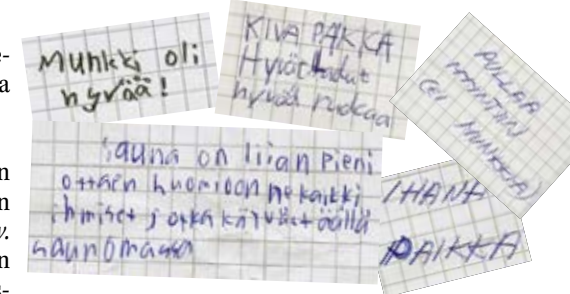 Munkki oli
hyvää!
KIVA PAKKA
Hyvät Ladut
hyvää ruokaa
PULLAA
MYYNTIIN
(EI MUNKKEJA)
Sauna on liian pieni
ottaen huomioon ne kaikki
ihmiset jotka käyvät täällä
saunomassa
IHANA
PAIKKA